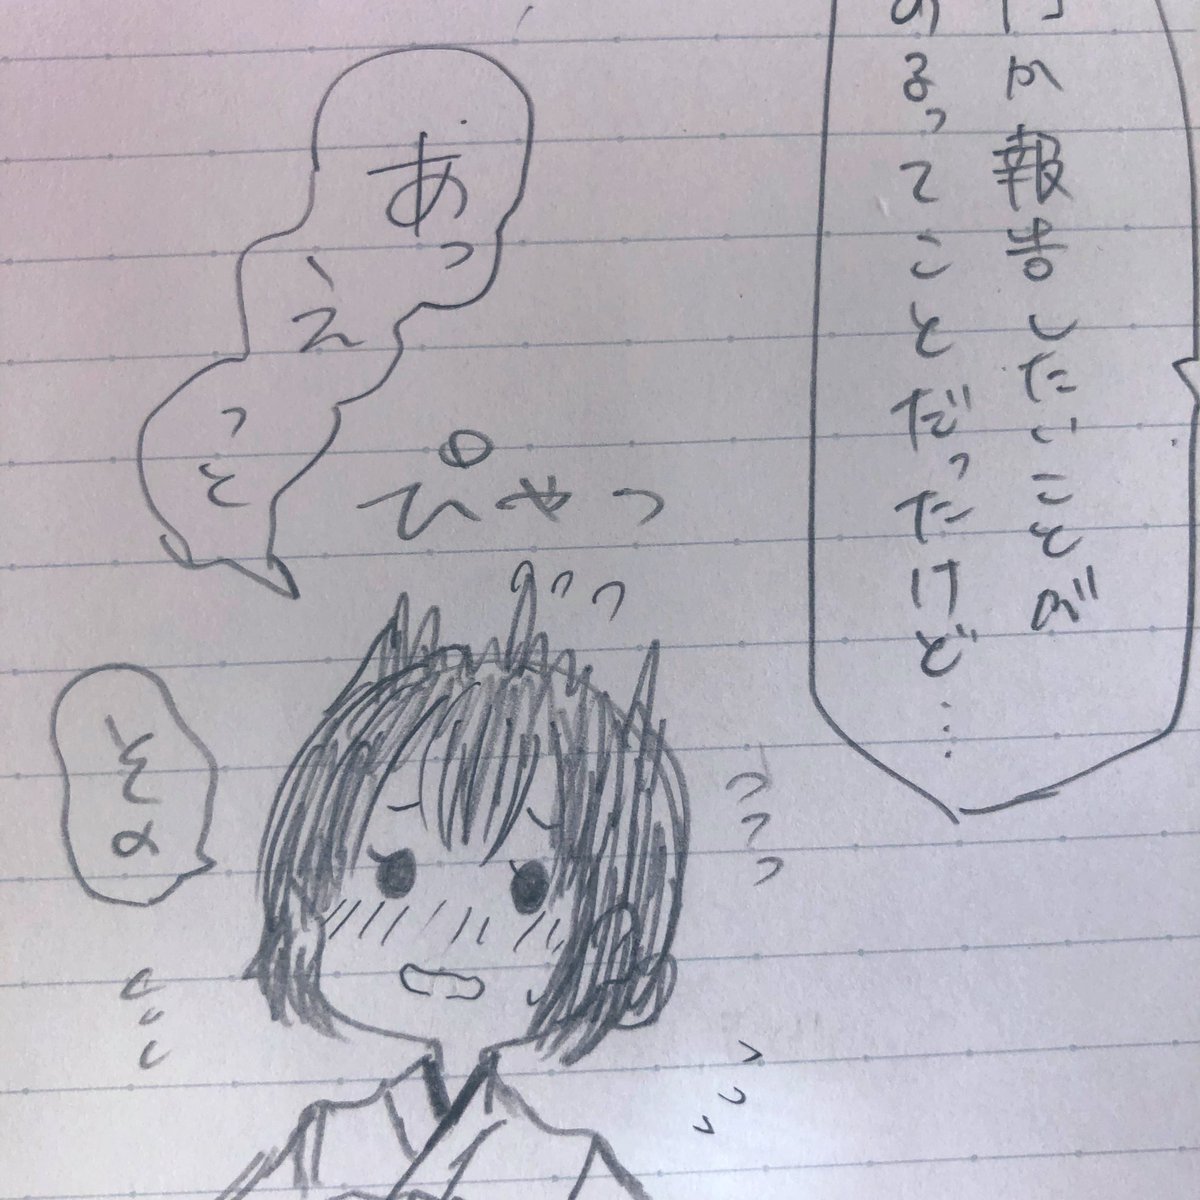 か報告したいことが
あるってことだったけど…
ぴゃっ
あっ
え
っと
その